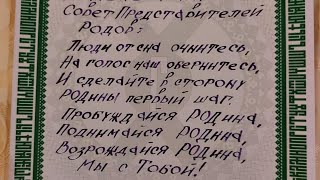 Совет Представителей
Родов:
Люди от сна очнитесь,
На голос наш обернитесь,
И сделайте в сторону
Родины первый шаг.
Пробуждайся Родина,
Поднимайся Родина,
Возрождайся Родина,
Мы с Тобой!